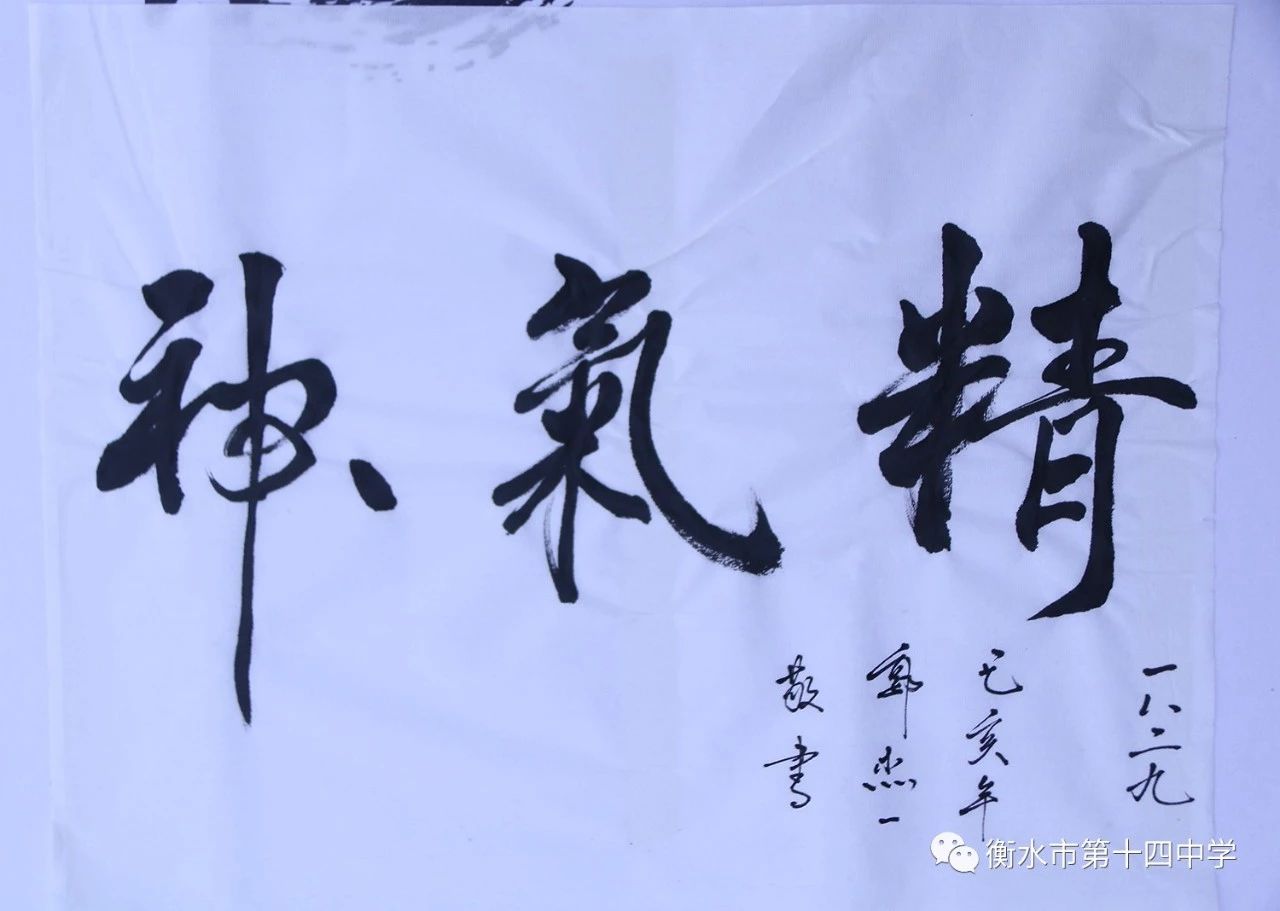 精氣神
一八二九
己亥年
郭杰一
敬書
衡水市第十四中学